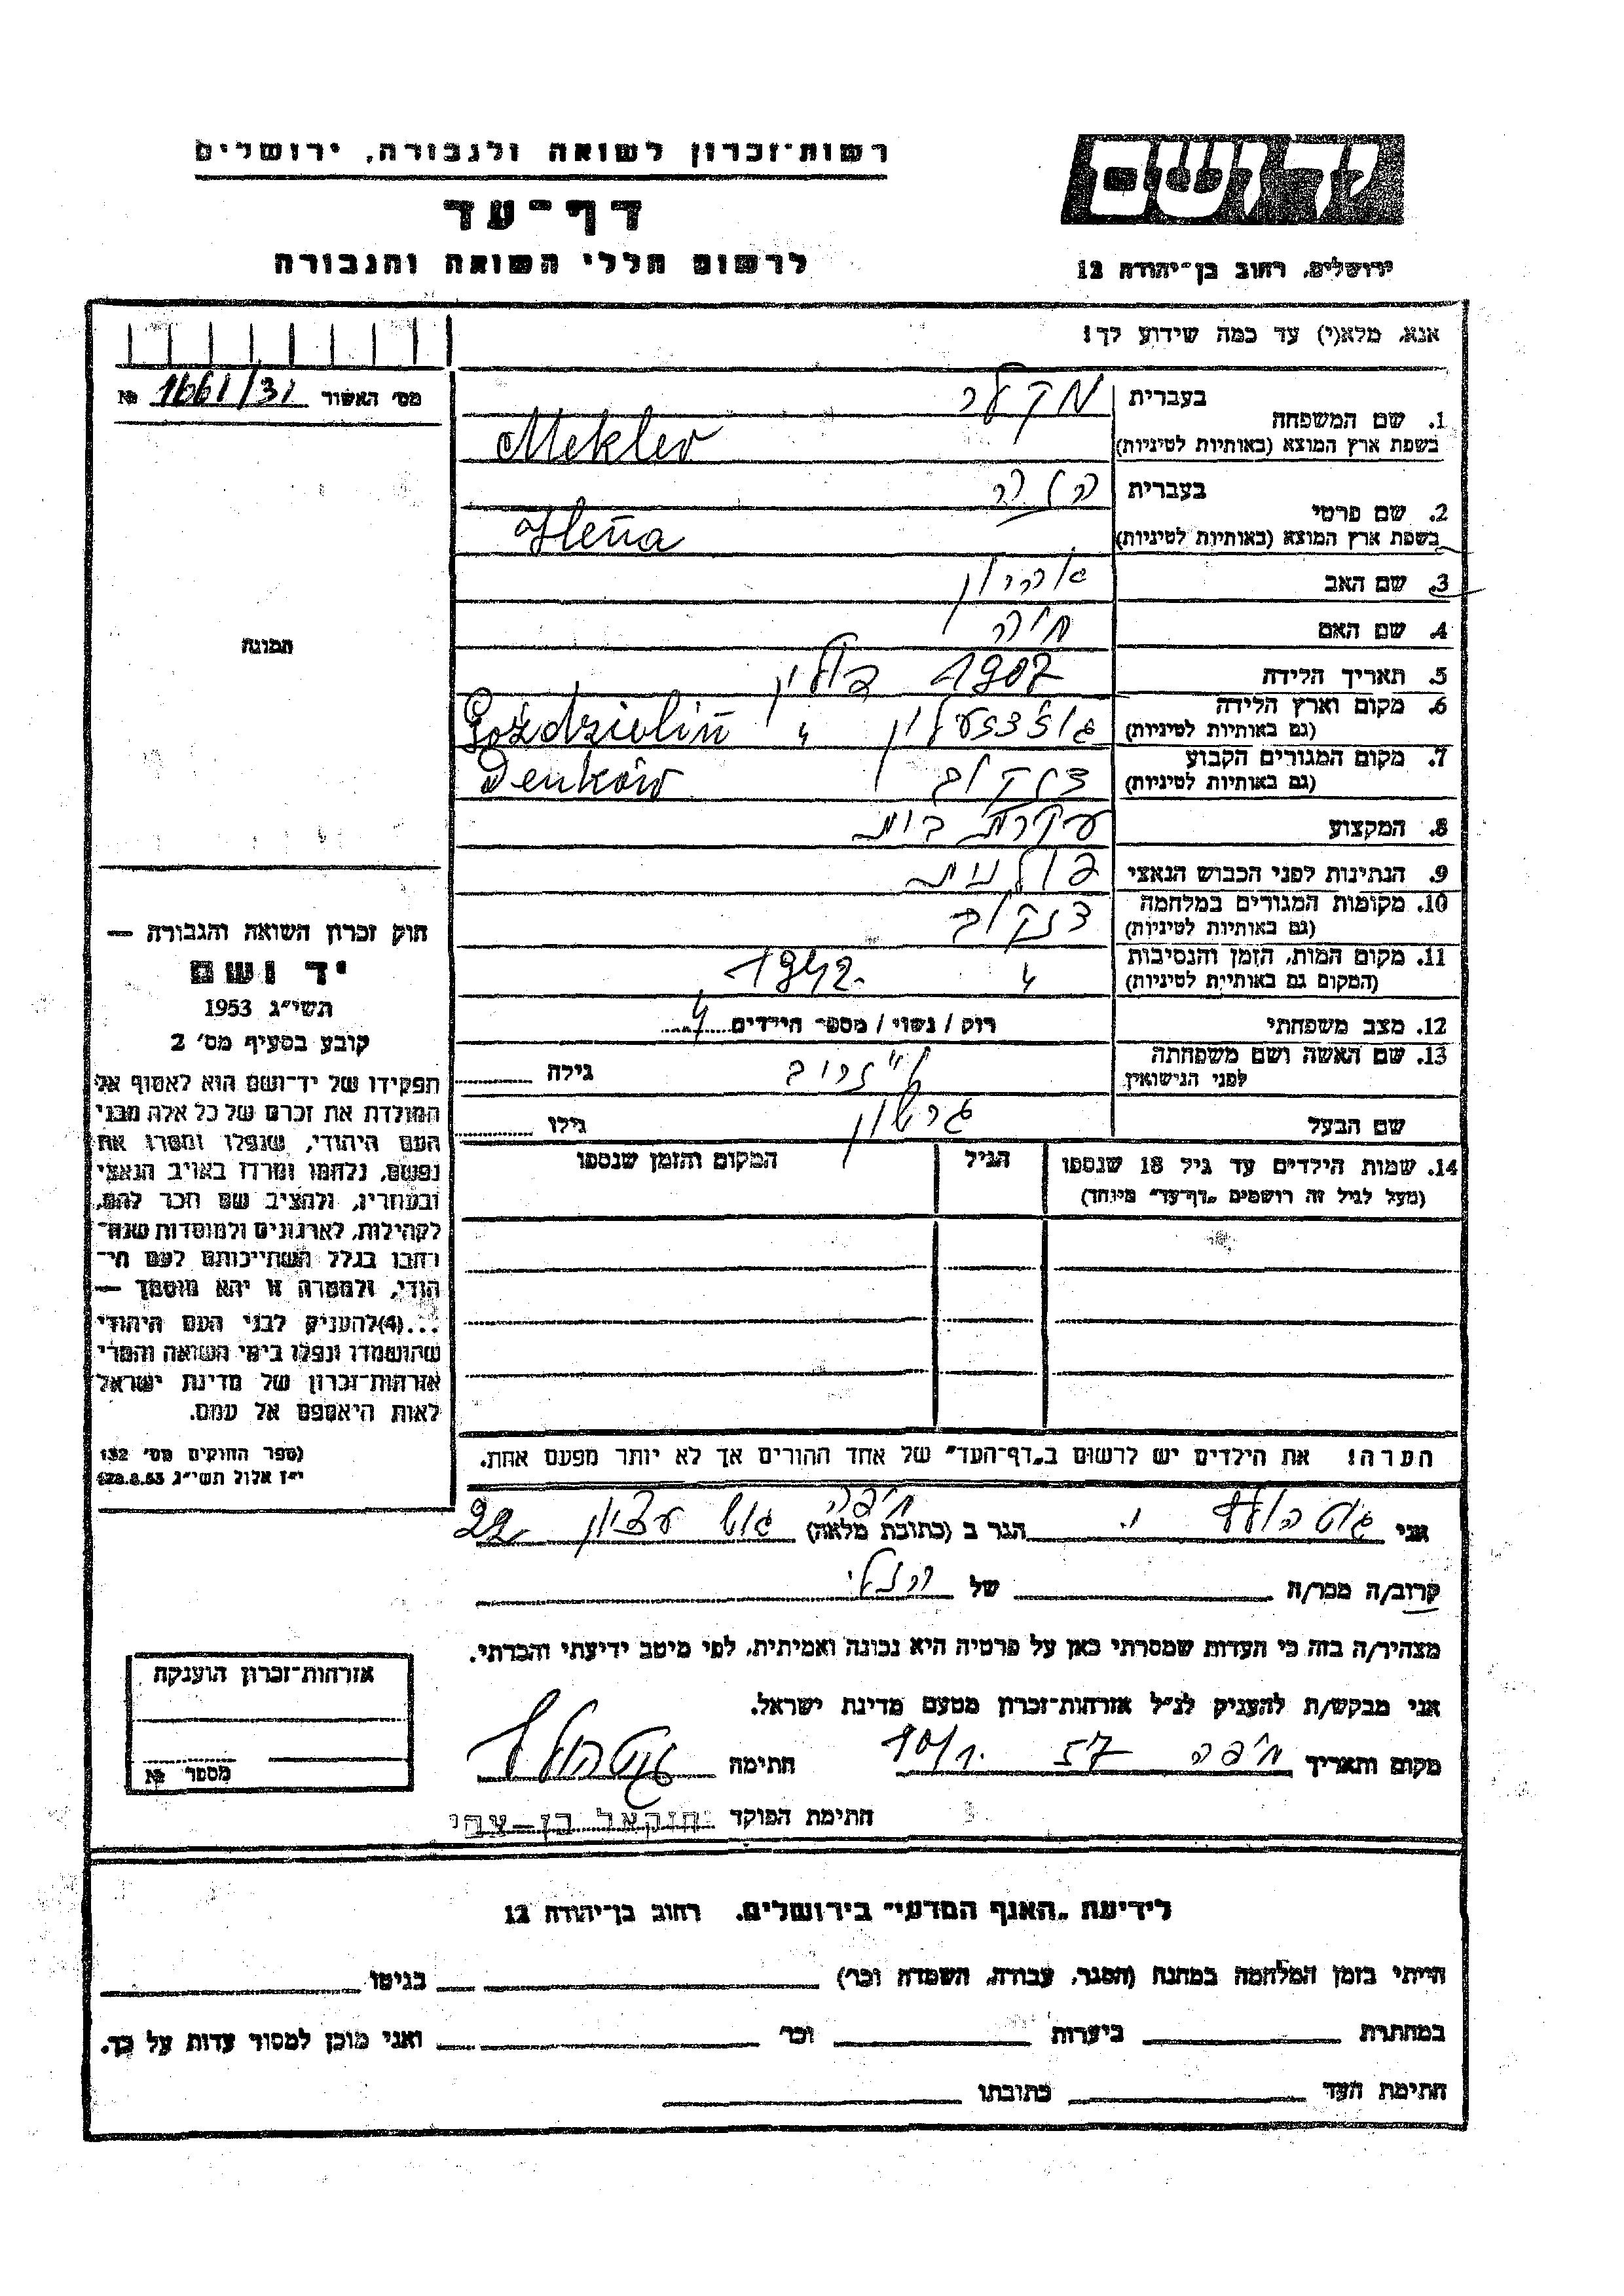 רשות-זכרון לשואה ולגבורה, ירושלים
דף-עד
לרשום חללי השואה והגבורה
יד ושם
ירושלים, רחוב בן-יהודה 12
אנא, מלא(י) עד כמה שידוע לך!
מס׳ האשור 1661/31 №
תמונה
1. שם המשפחה
בעברית מקלר
בשפת ארץ המוצא (באותיות לטיניות) Mekler
2. שם פרטי
בעברית הנה
בשפת ארץ המוצא (באותיות לטיניות) Hena
3. שם האב אהרון
4. שם האם חיה
5. תאריך הלידה 1907 פולין
6. מקום וארץ הלידה
(גם באותיות לטיניות) " Goździelin
7. מקום המגורים הקבוע
(גם באותיות לטיניות) דנקוב Denków
8. המקצוע עקרת בית
9. הנתינות לפני הכבוש הנאצי פולנית
10. מקומות המגורים במלחמה
(גם באותיות לטיניות) דנקוב
11. מקום המות, הזמן והנסיבות
(המקום גם באותיות לטיניות) " 1942.
12. מצב משפחתי רוק / נשוי / מספר הילדים 4
13. שם האשה ושם משפחתה
לפני הנישואין גילה
שם הבעל גרשון גילו
14. שמות הילדים עד גיל 18 שנספו
(מעל לגיל זה רושמים "דף-עד" מיוחד)
הגיל
המקום והזמן שנספו
הערה! את הילדים יש לרשום ב"דף-העד" של אחד ההורים אך לא יותר מפעם אחת.
חוק זכרון השואה והגבורה —
יד ושם
תשי״ג 1953
קובע בסעיף מס׳ 2
תפקידו של יד-ושם הוא לאסוף אל
המולדת את זכרם של כל אלה מבני
העם היהודי, שנפלו ומסרו את
נפשם, נלחמו ומרדו באויב הנאצי
ובעוזריו, ולהציב שם וזכר להם,
לקהילות, לארגונים ולמוסדות שנח-
רבו בגלל השתייכותם לעם הי-
הודי, ולמטרה זו יהא מוסמך —
...(4) להעניק לבני העם היהודי
שהושמדו ונפלו בימי השואה והמרי
אזרחות-זכרון של מדינת ישראל
לאות היאספם אל עמם.
(ספר החוקים מס׳ 132
י״ז אלול תשי״ג 28.8.53)
אני גוטהולץ י. הגר ב (כתובת מלאה) חיפה גוש עציון 22
קרוב/ה מכר/ה של הנ״ל
מצהיר/ה בזה כי העדות שמסרתי כאן על פרטיה היא נכונה ואמיתית, לפי מיטב ידיעתי והכרתי.
אני מבקש/ת להעניק לנ״ל אזרחות-זכרון מטעם מדינת ישראל.
מקום ותאריך חיפה 57 10/1. חתימה גוטהולץ
חתימת הפוקד יחזקאל בן-צבי
אזרחות-זכרון הוענקה
מספר №
לידיעת "האגף המדעי" בירושלים, רחוב בן-יהודה 12
הייתי בזמן המלחמה במחנה (הסגר, עבודה, השמדה וכו׳) בגיטו
במחתרת ביערות וכו׳ ואני מוכן למסור עדות על כך.
חתימת העד כתובתו